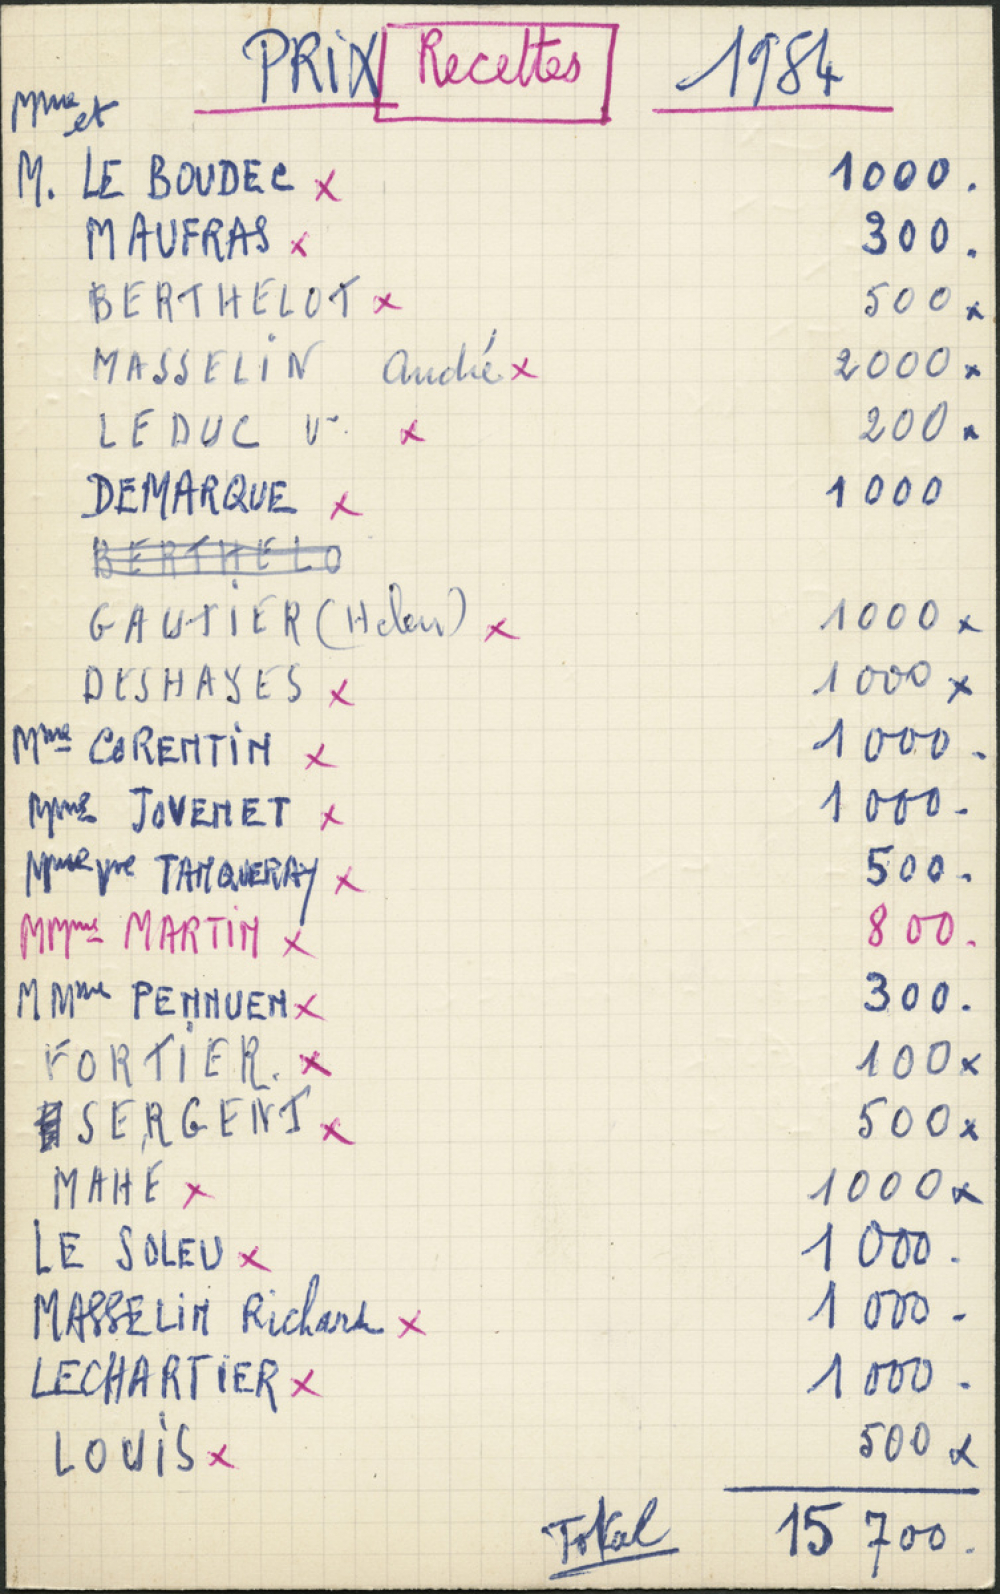 PRIX Recettes 1984
Mme et
M. LE BOUDEC x 1000.
MAUFRAS x 300.
BERTHELOT x 500 x
MASSELIN André x 2000 x
LEDUC V. x 200 x
DEMARQUE x 1000
BERTHELO
GAUTIER (Helen) x 1000 x
DESHAYES x 1000 x
Mme CORENTIN x 1000.
Mme JOVENET x 1000.
Mme Vve TANQUERAY x 500.
MMme MARTIN x 800.
M Mme PENNUEN x 300.
FORTIER. x 100 x
SERGENT x 500 x
MAHE x 1000 x
LE SOLEU x 1000.
MASSELIN Richard x 1000 -
LECHARTIER x 1000 -
LOUIS x 500 x
Total 15 700.